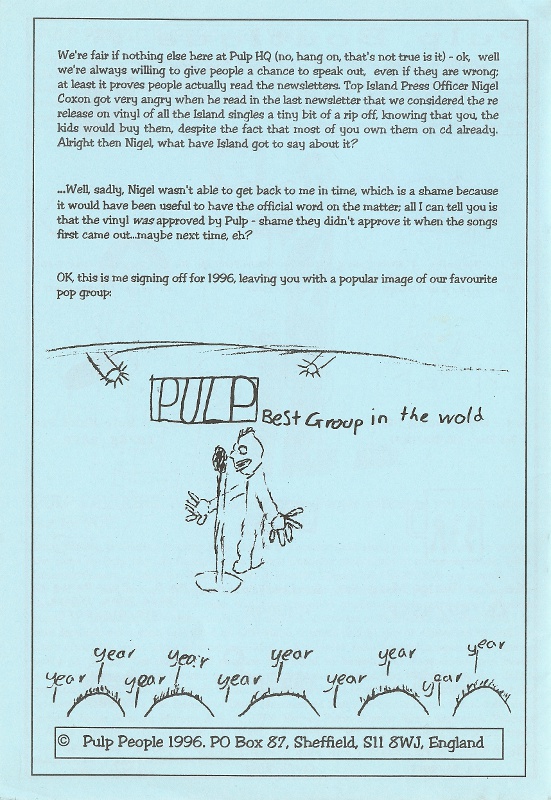 We're fair if nothing else here at Pulp HQ (no, hang on, that's not true is it) - ok, well
we're always willing to give people a chance to speak out, even if they are wrong;
at least it proves people actually read the newsletters. Top Island Press Officer Nigel
Coxon got very angry when he read in the last newsletter that we considered the re
release on vinyl of all the Island singles a tiny bit of a rip off, knowing that you, the
kids would buy them, despite the fact that most of you own them on cd already.
Alright then Nigel, what have Island got to say about it?
...Well, sadly, Nigel wasn't able to get back to me in time, which is a shame because
it would have been useful to have the official word on the matter; all I can tell you is
that the vinyl was approved by Pulp - shame they didn't approve it when the songs
first came out...maybe next time, eh?
OK, this is me signing off for 1996, leaving you with a popular image of our favourite
pop group:
PULP
Best Group in the wold
year
year
year
year
year
year
year
year
year
year
© Pulp People 1996. PO Box 87, Sheffield, S11 8WJ, England